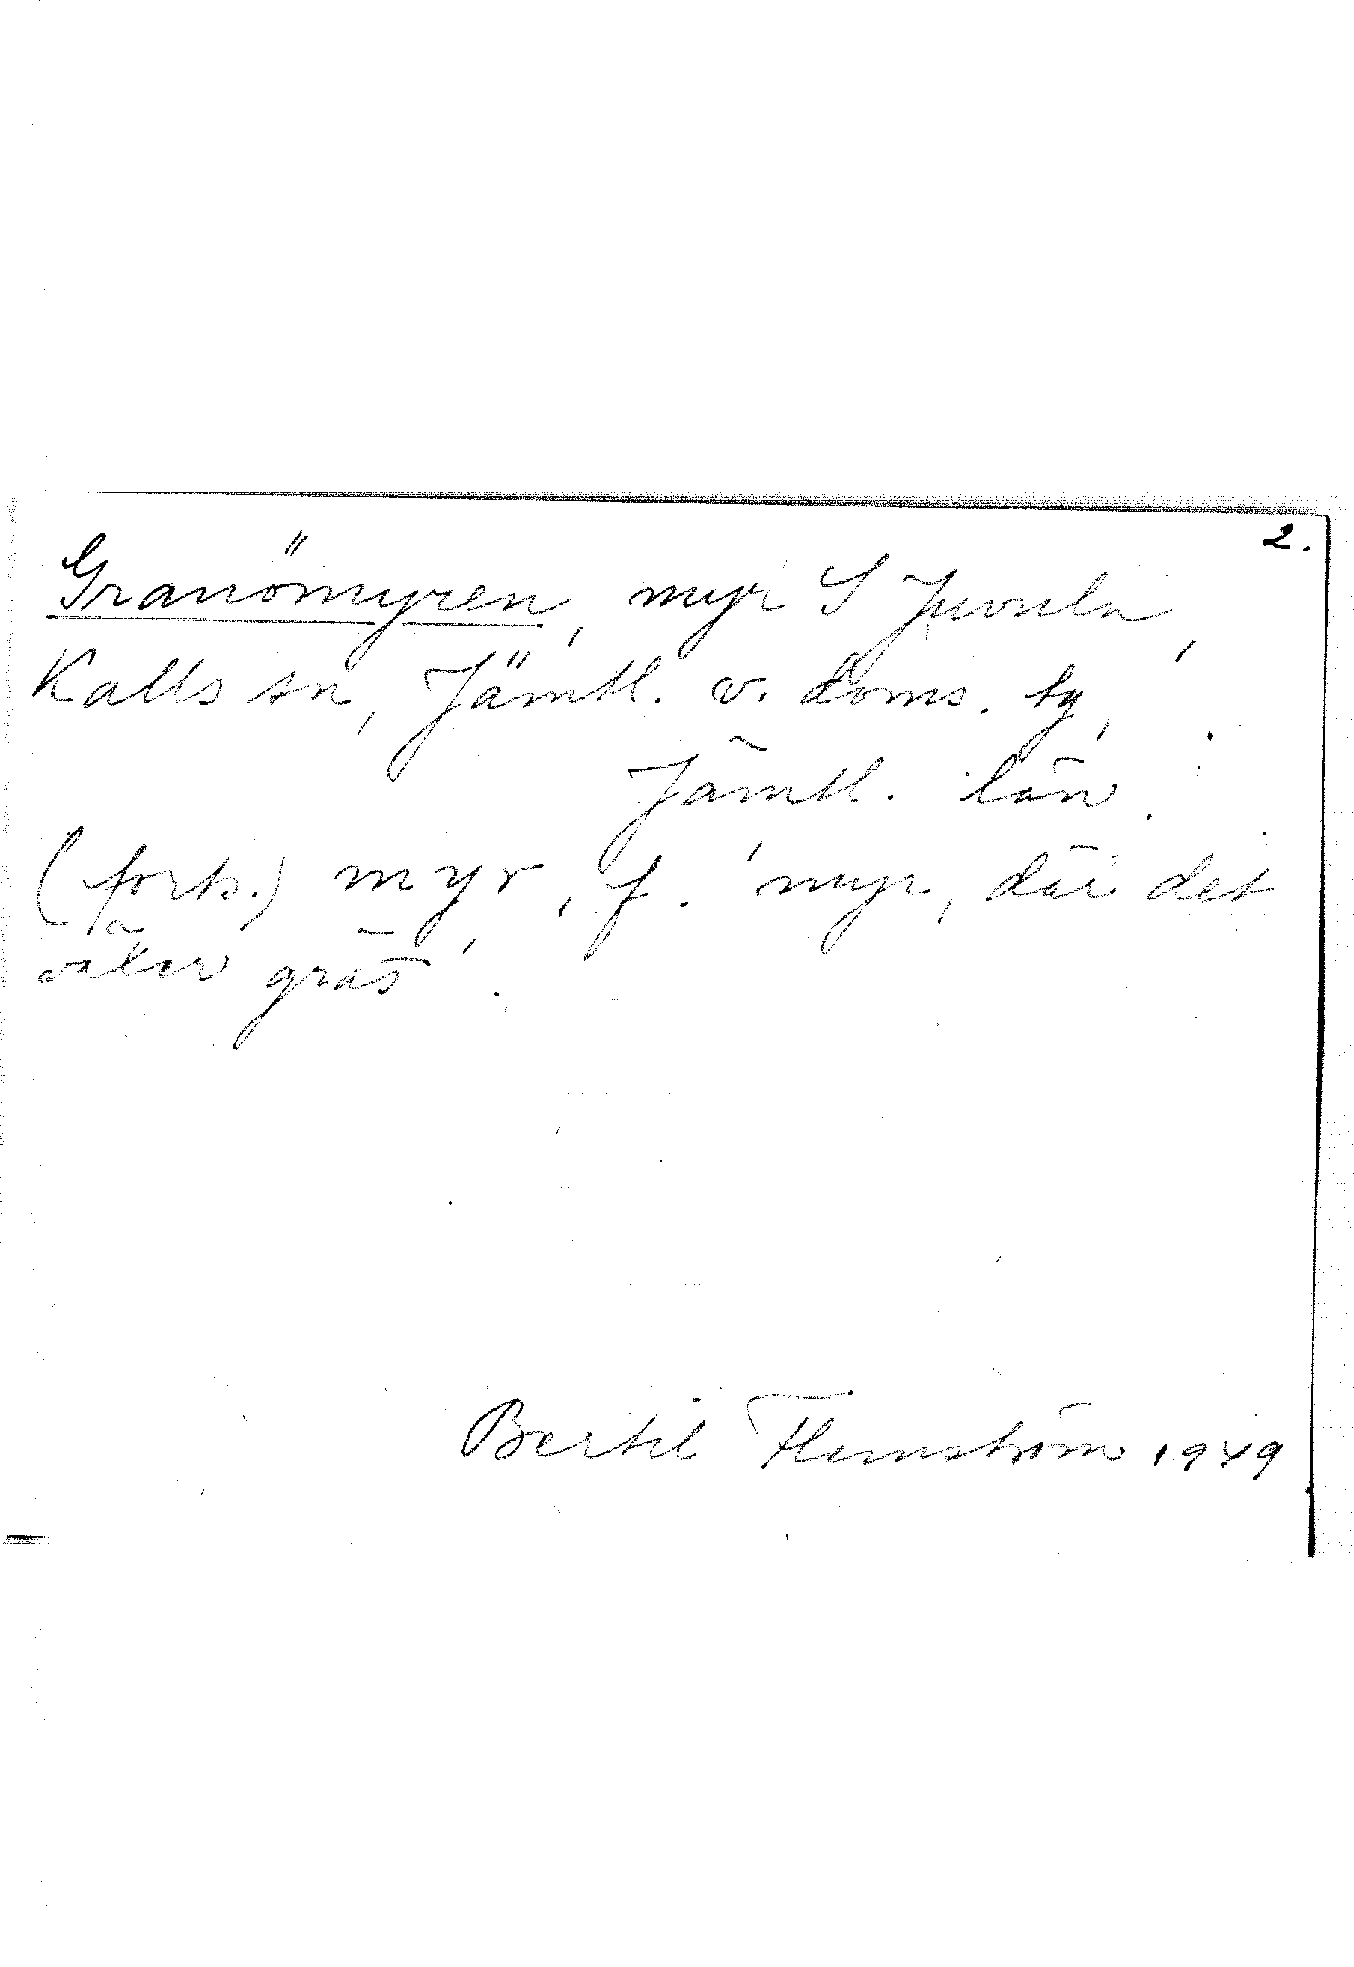 2.
Granömyren, myr S Juvuln,
Kalls sn, Jämtl. v. doms. tg,
Jämtl. län.
(forts.) myr, f. 'myr, där det
växer gräs'.
Bertil Flemström 1949